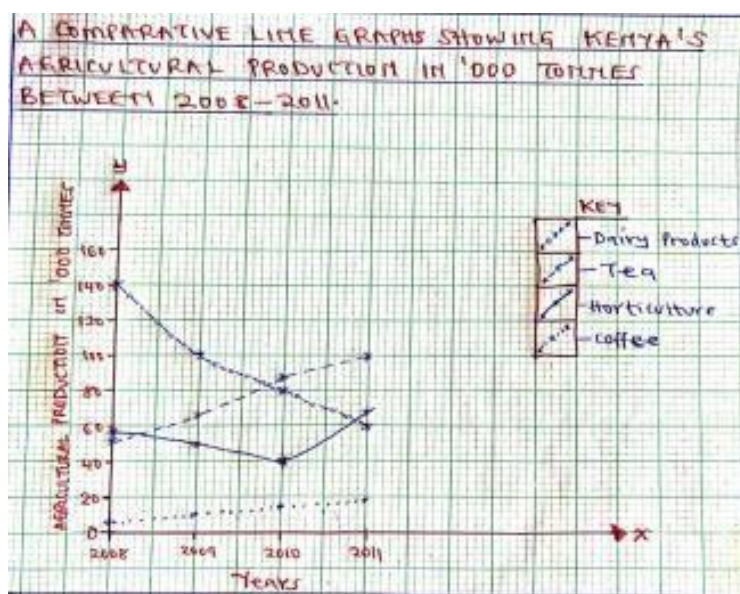 A COMPARATIVE LINE GRAPHS SHOWING KENYA'S
AGRICULTURAL PRODUCTION IN '000 TONNES
BETWEEN 2008-2011.
y
AGRICULTURAL PRODUCTION IN '000 TONNES
160
140
120
100
80
60
40
20
0
2008 2009 2010 2011
x
Years
KEY
Dairy Products
Tea
Horticulture
coffee